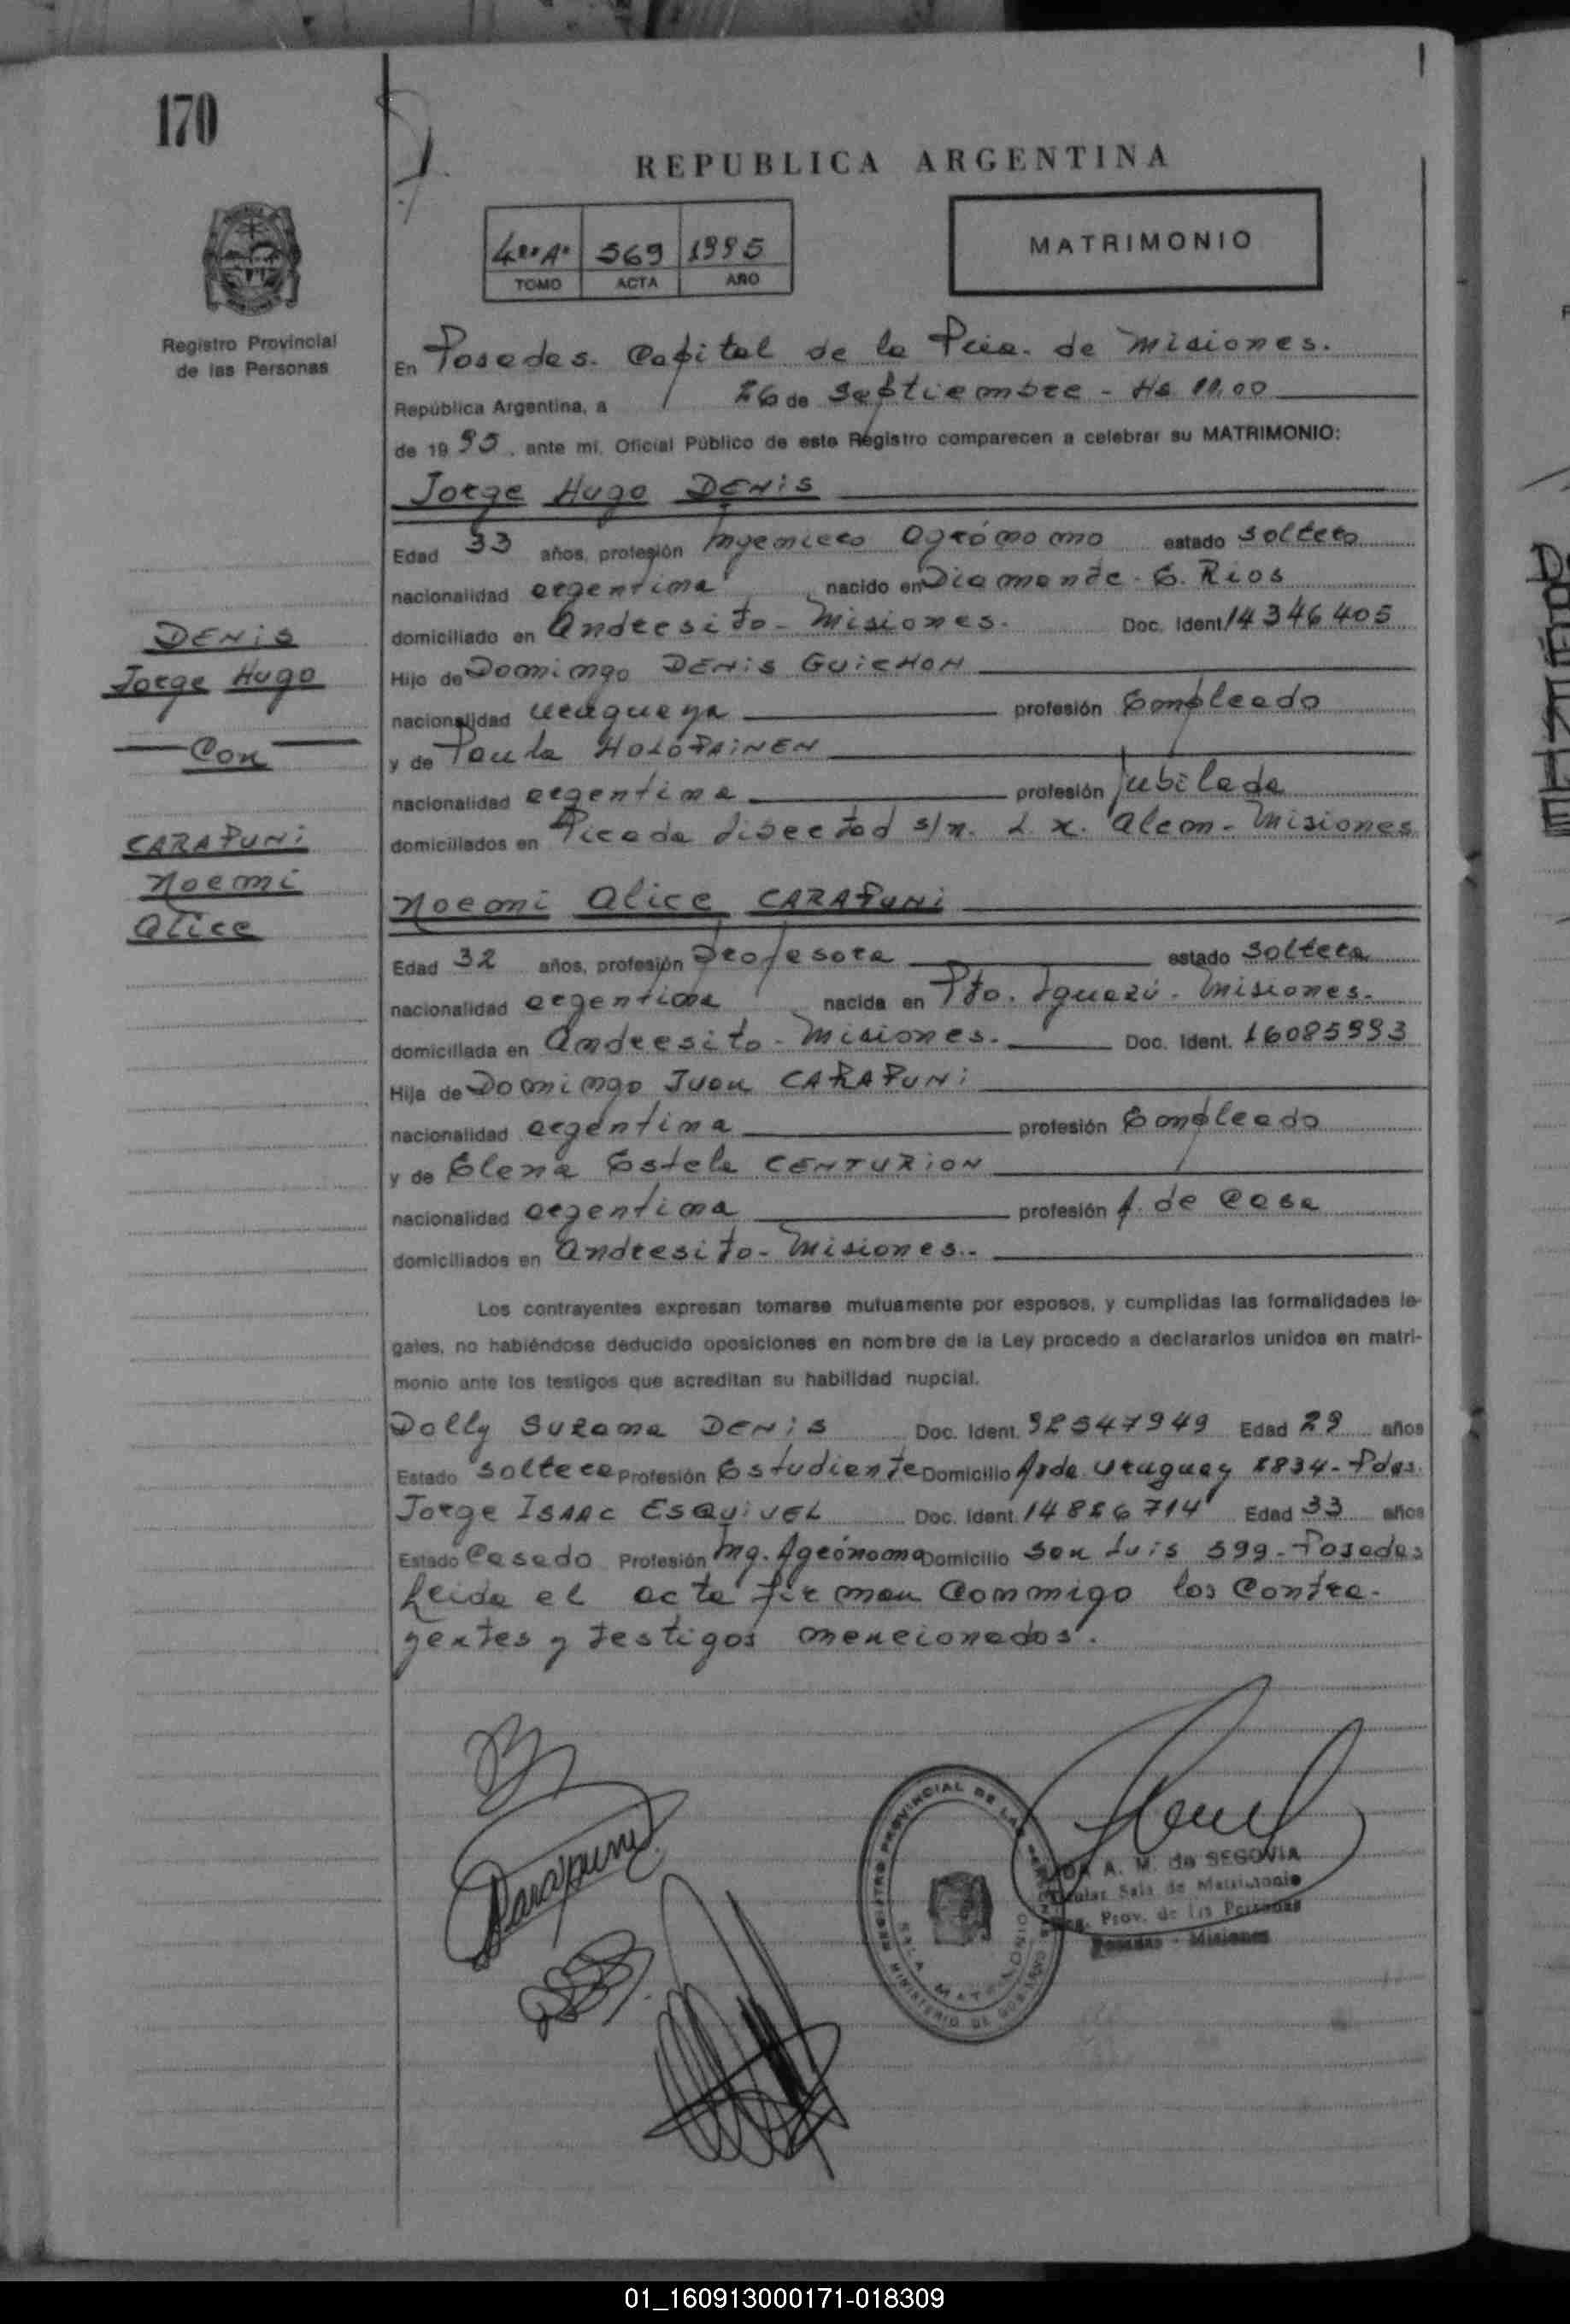 170
REPUBLICA ARGENTINA
4to A° 569 1995
TOMO ACTA AÑO
MATRIMONIO
Registro Provincial
de las Personas
En Posadas. Capital de la Pcia. de Misiones.
República Argentina, a 26 de Septiembre - Hs 11.00
de 1995. ante mi, Oficial Público de este Registro comparecen a celebrar su MATRIMONIO:
Jorge Hugo DENIS
Edad 33 años, profesión Ingeniero Agrónomo estado soltero
nacionalidad argentina nacido en Diamante - E. Rios
domiciliado en Andresito - Misiones. Doc. Ident. 14346405
Hijo de Domingo DENIS GUICHON
nacionalidad uruguaya profesión Empleado
y de Paula HOLOPAINEN
nacionalidad argentina profesión jubilada
domiciliados en Picada Libertad s/n. L. N. Alem - Misiones
DENIS
Jorge Hugo
Con
CARAPUNI
Noemi
Alice
Noemi Alice CARAPUNI
Edad 32 años, profesión Profesora estado soltera
nacionalidad argentina nacida en Pto. Iguazú - Misiones.
domiciliada en Andresito - Misiones. Doc. Ident. 16085993
Hija de Domingo Juan CARAPUNI
nacionalidad argentina profesión Empleado
y de Elena Estela CENTURION
nacionalidad argentina profesión A. de Casa
domiciliados en Andresito - Misiones.-
Los contrayentes expresan tomarse mutuamente por esposos, y cumplidas las formalidades le-
gales, no habiéndose deducido oposiciones en nombre de la Ley procedo a declararlos unidos en matri-
monio ante los testigos que acreditan su habilidad nupcial.
Dolly Suzana DENIS Doc. Ident. 92547949 Edad 29 años
Estado soltera Profesión Estudiente Domicilio Avda. Uruguay 2834 - Pdas.
Jorge ISAAC ESQUIVEL Doc. Ident. 14826714 Edad 33 años
Estado Casado Profesión Ing. Agrónomo Domicilio San Luis 599 - Posadas
Leida el acta firman conmigo los contra-
yentes y testigos mencionados.
Carapuni
REGISTRO PROVINCIAL DE LAS PERSONAS
SALA MATRIMONIO
MINISTERIO DE GOBIERNO
A. M. de SEGOVIA
Titular Sala de Matrimonio
Reg. Prov. de las Personas
Posadas - Misiones
01_160913000171-018309